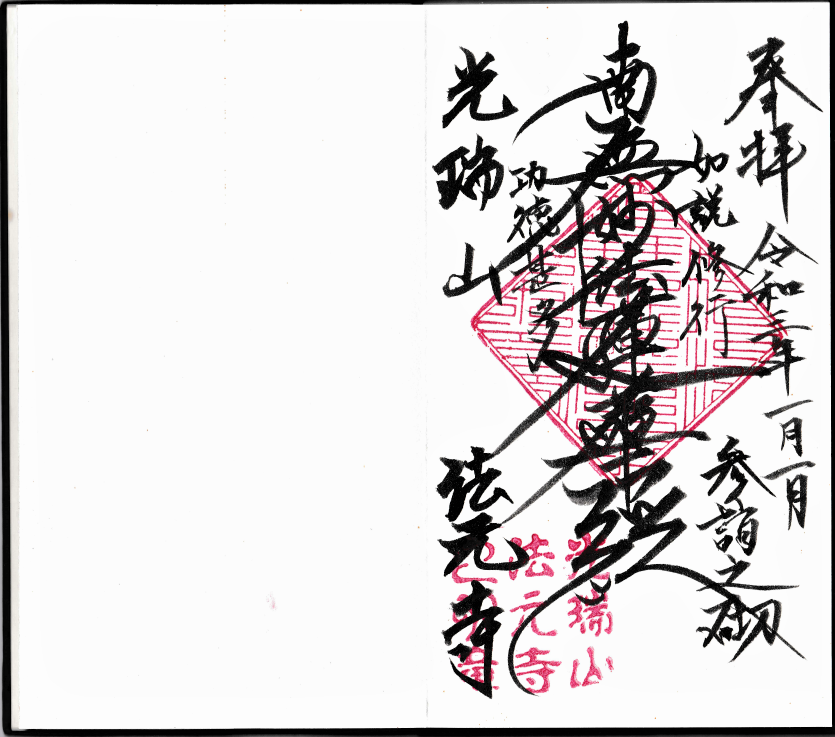 奉拝 令和三年 一月一日
参詣之砌
如説修行
南無妙法蓮華経
功徳甚多
光瑞山 法元寺
光瑞山
法元寺